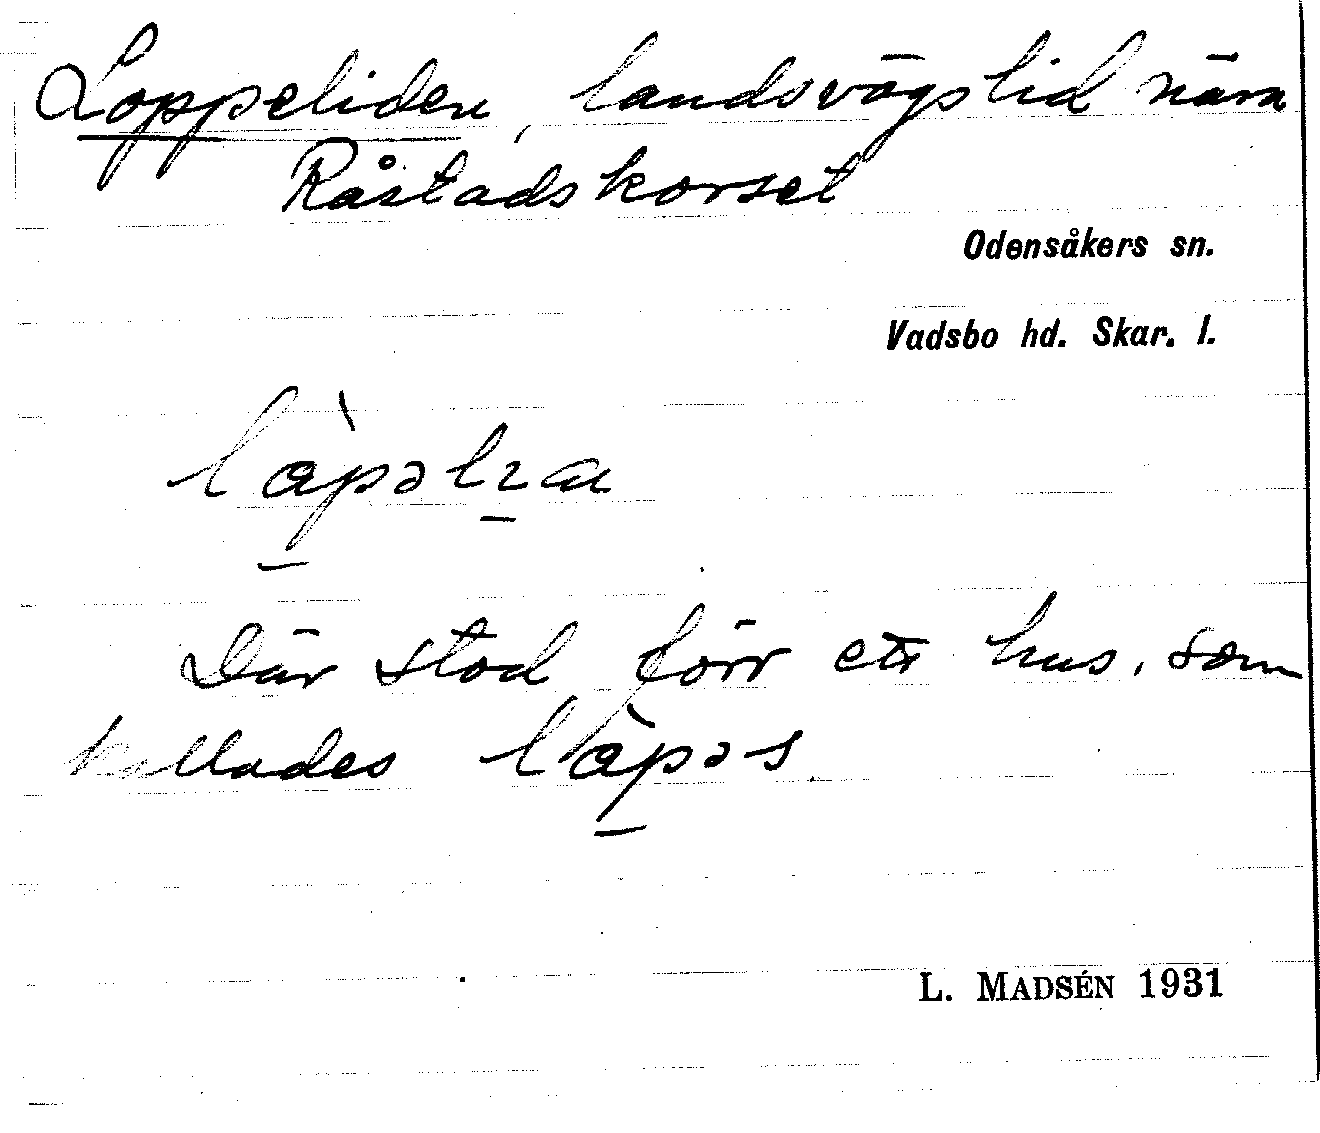 Loppeliden, landsvägslid nära
Råstadskorset
Odensåkers sn.
Vadsbo hd. Skar. l.
Där stod förr ett hus, som
kallades làpəs
L. MADSÉN 1931